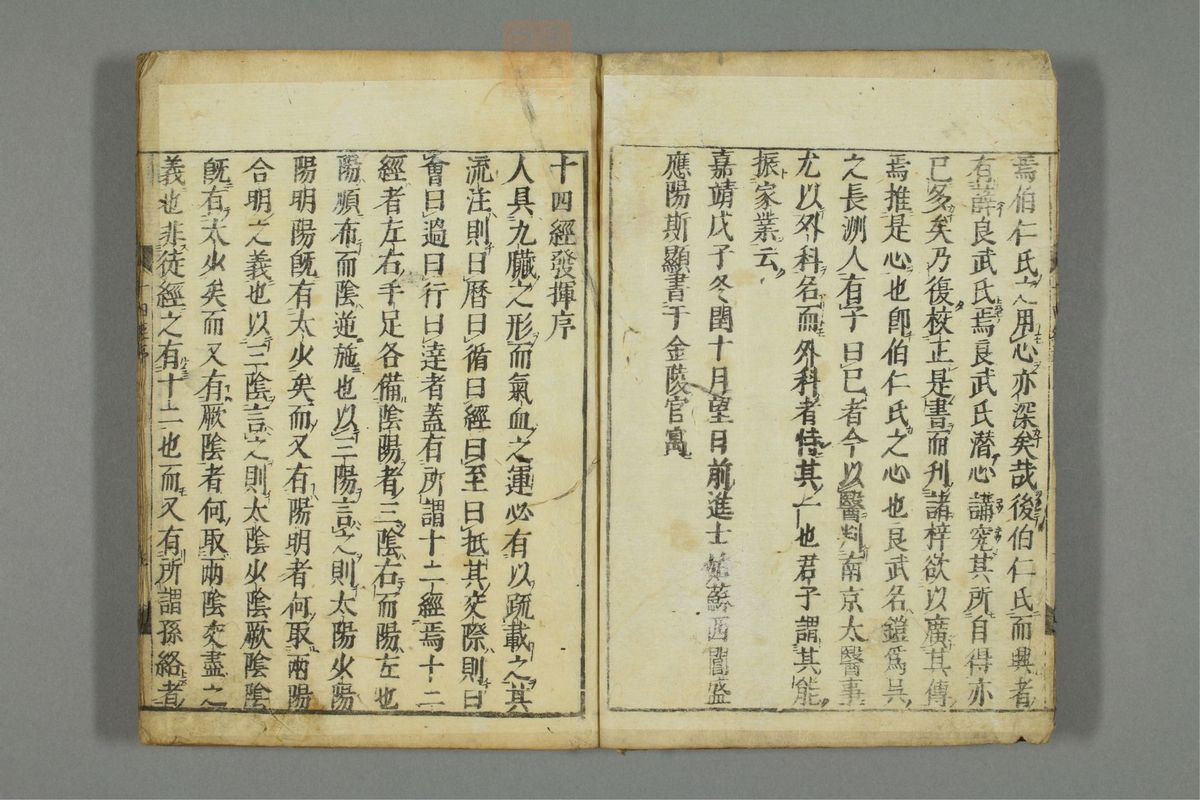 焉伯仁氏之用心亦深矣哉後伯仁氏而興者
有薛良武氏焉良武氏潜心講究其所自得亦
已多矣乃復校正是書而刋諸梓欲以廣其傳
焉推是心也卽伯仁氏之心也良武名鎧爲吳
之長洲人有子曰已者今以醫判南京太醫事
尤以外科名而外科者特其一也君子謂其能
振家業云
嘉靖戊子冬閏十月望日前進士姑蘇西閶盛
應陽斯顯書于金陵官寓
十四經發揮序
人具九臓之形而氣血之運必有以疏載之其
流注則曰曆曰循曰經曰至曰抵其交際則曰
會曰過曰行曰達者蓋有所謂十二經焉十二
經者左右手足各備陰陽者三陰右而陽左也
陽順布而陰逆施也以三陽言之則太陽少陽
陽明陽旣有太少矣而又有陽明者何取兩陽
合明之義也以三陰言之則太陰少陰厥陰陰
旣有太少矣而又有厥陰者何取兩陰交盡之
義也非徒經之有十二也而又有所謂孫絡者